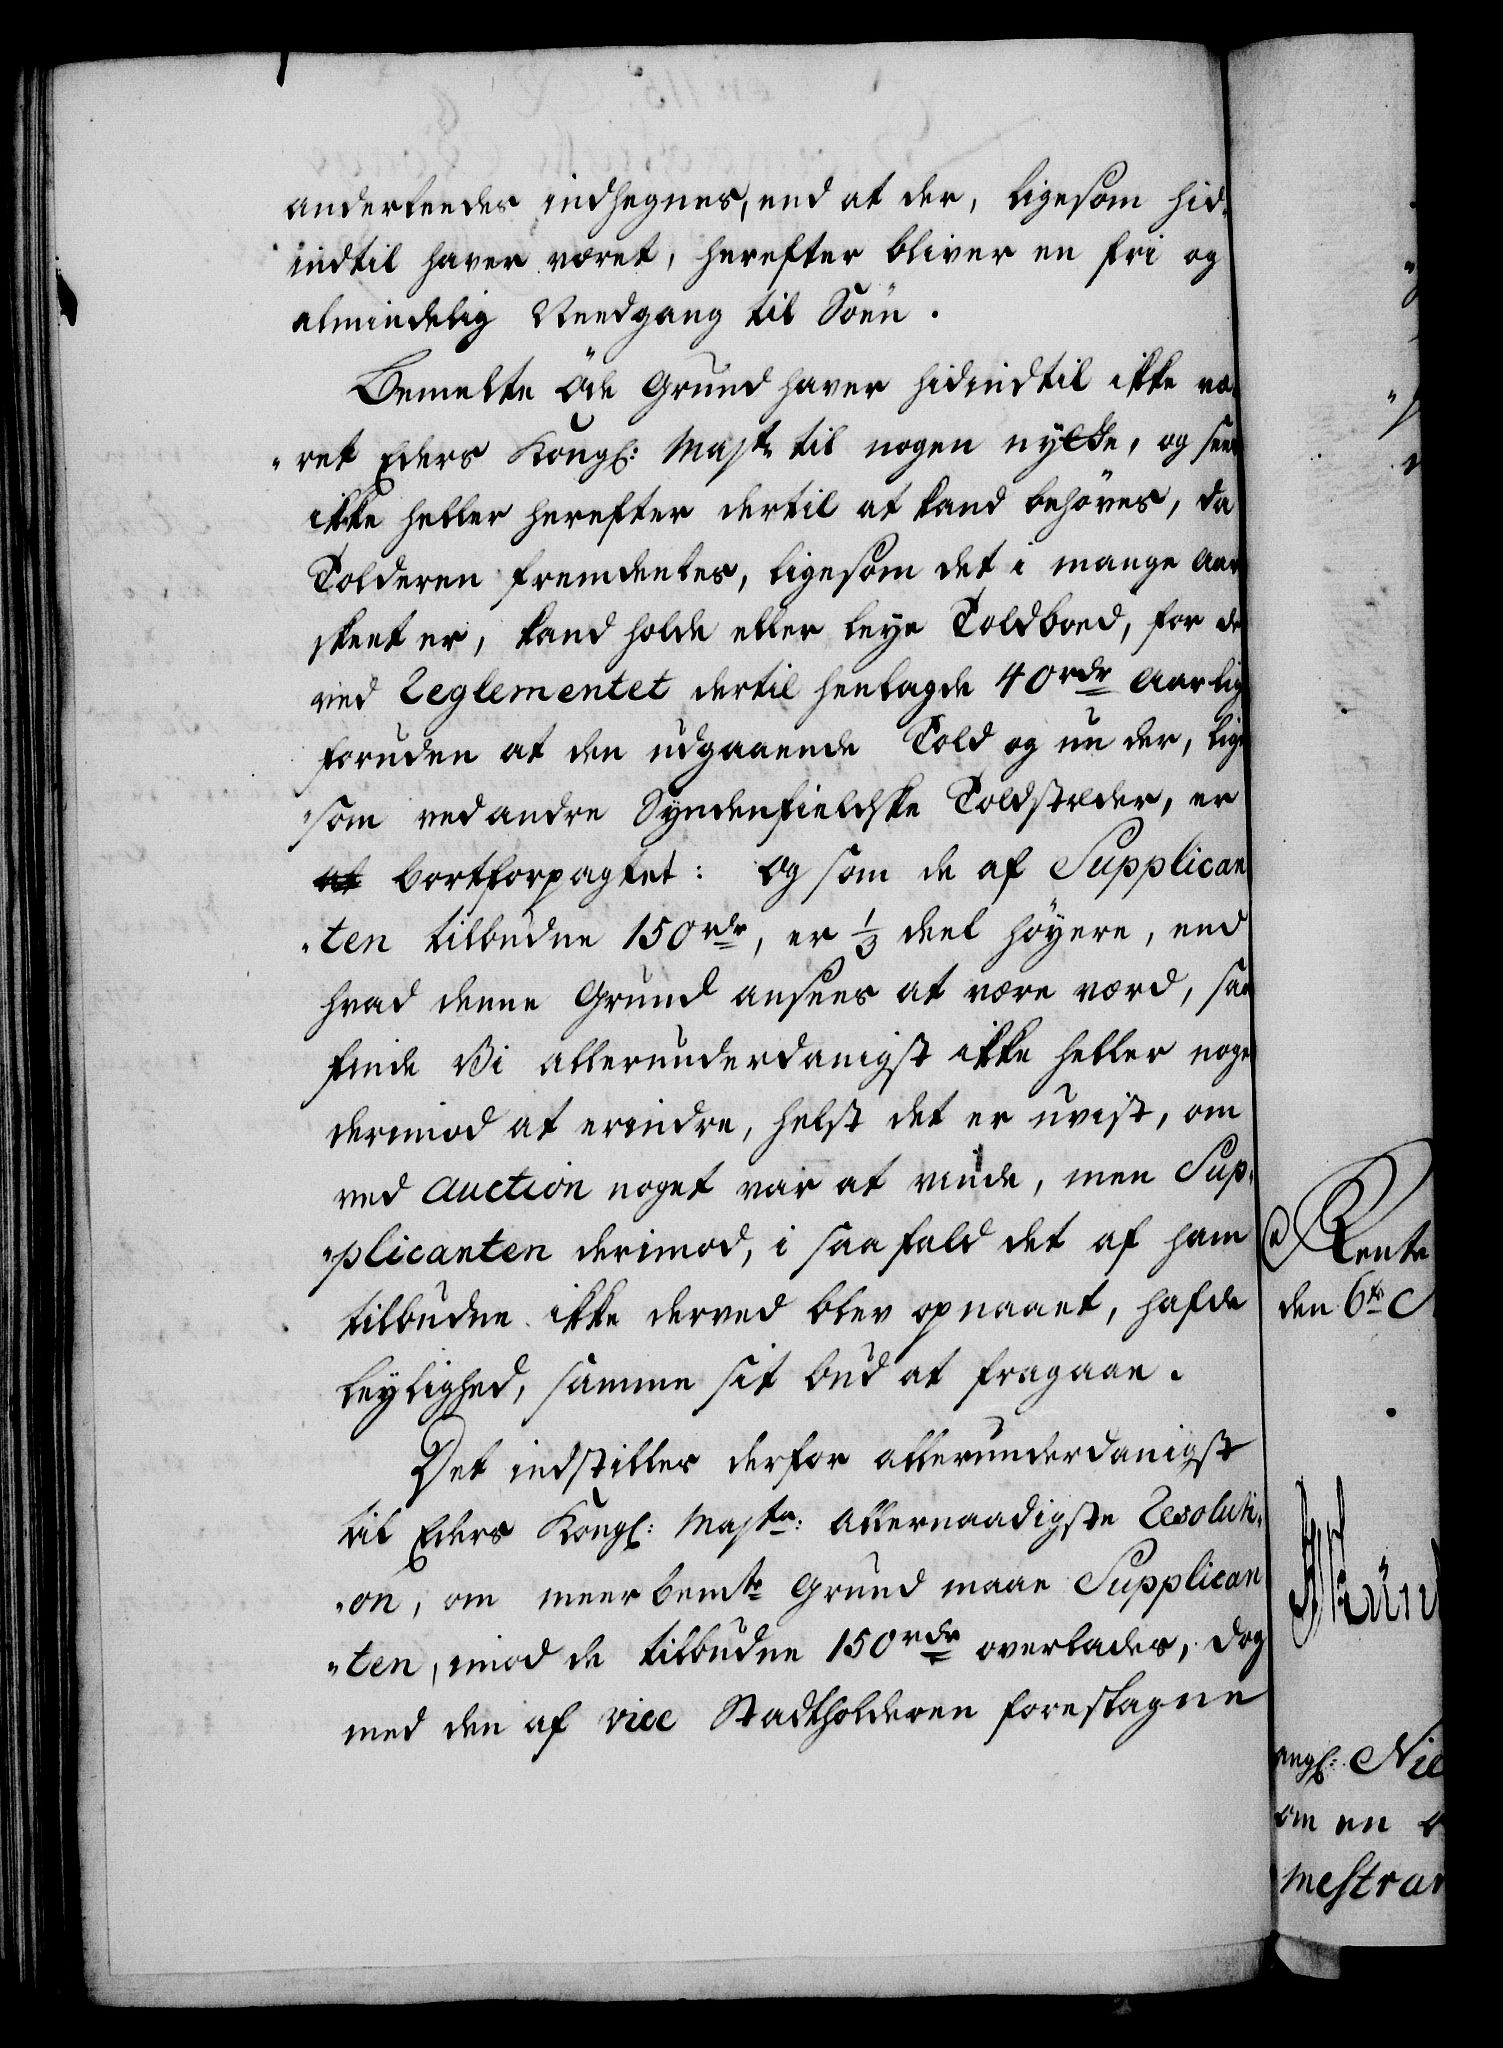 anderleedes indhegnes, end at der, ligesom hid-
indtil haver været, herefter bliver en fri og
almindelig Needgang til Söen.
Bemelte öde Grund haver hidindtil ikke væ-
ret Eders Kongl: Mayts til nogen nytte, og sees
ikke heller herefter dertil at kand behöves, da
Tolderen fremdeeles, ligesom det i mange Aar
skeet er, kand holde eller leye Toldboed, for de
ved Reglementet dertil henlagde 40 rdr Aarlig
foruden at den udgaaende Told og nu der, lige
som ved andre Syndenfieldske Toldstæder, er
bortforpagtet: Og som de af Supplican
ten tilbudne 150 rdr, er 1/3 deel höyere, end
hvad denne Grund ansees at være værd, saa
finde Vi allerunderdanigst ikke heller noget
derimod at erindre, helst det er uvist, om
ved Auction noget var at vinde, men Sup-
plicanten derimod, i saa fald det af ham
tilbudne ikke derved blev opnaaet, hafde
leylighed, samme sit bud at fragaae.
Det indstilles derfor allerunderdanigst
til Eders Kongl: Mayts: allernaadigste Resoluti-
on, om meerbemte Grund maae Supplican
ten, imod de tilbudne 150 rdr overlades, dog
med den af vice Stadtholderen foreslagne
Rente
den 6te
Nie
om en
mestrar